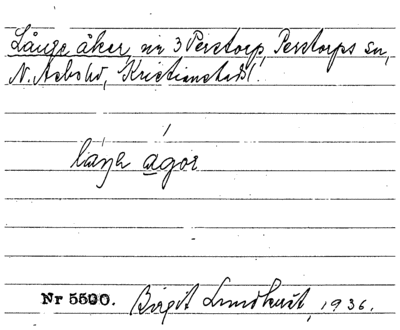 Långe åker nr 3 Perstorp, Perstorps sn,
N. Åsbo hd, Kristianstads l.
laŋa agor
Nr 5590. Birgit Lundkvist, 1936.